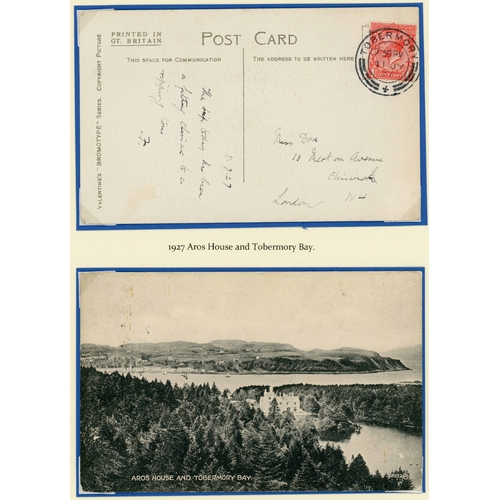 PRINTED IN
GT. BRITAIN
POST CARD
THIS SPACE FOR COMMUNICATION
THE ADDRESS TO BE WRITTEN HERE
VALENTINE'S "BROMOTYPE" SERIES. COPYRIGHT PICTURE
TOBERMORY
11.7.27
The trip today has been
a fitting climax to a
ripping tour
Miss Dox
10 Merton Avenue
Chiswick
London W4
1927 Aros House and Tobermory Bay.
AROS HOUSE AND TOBERMORY BAY.